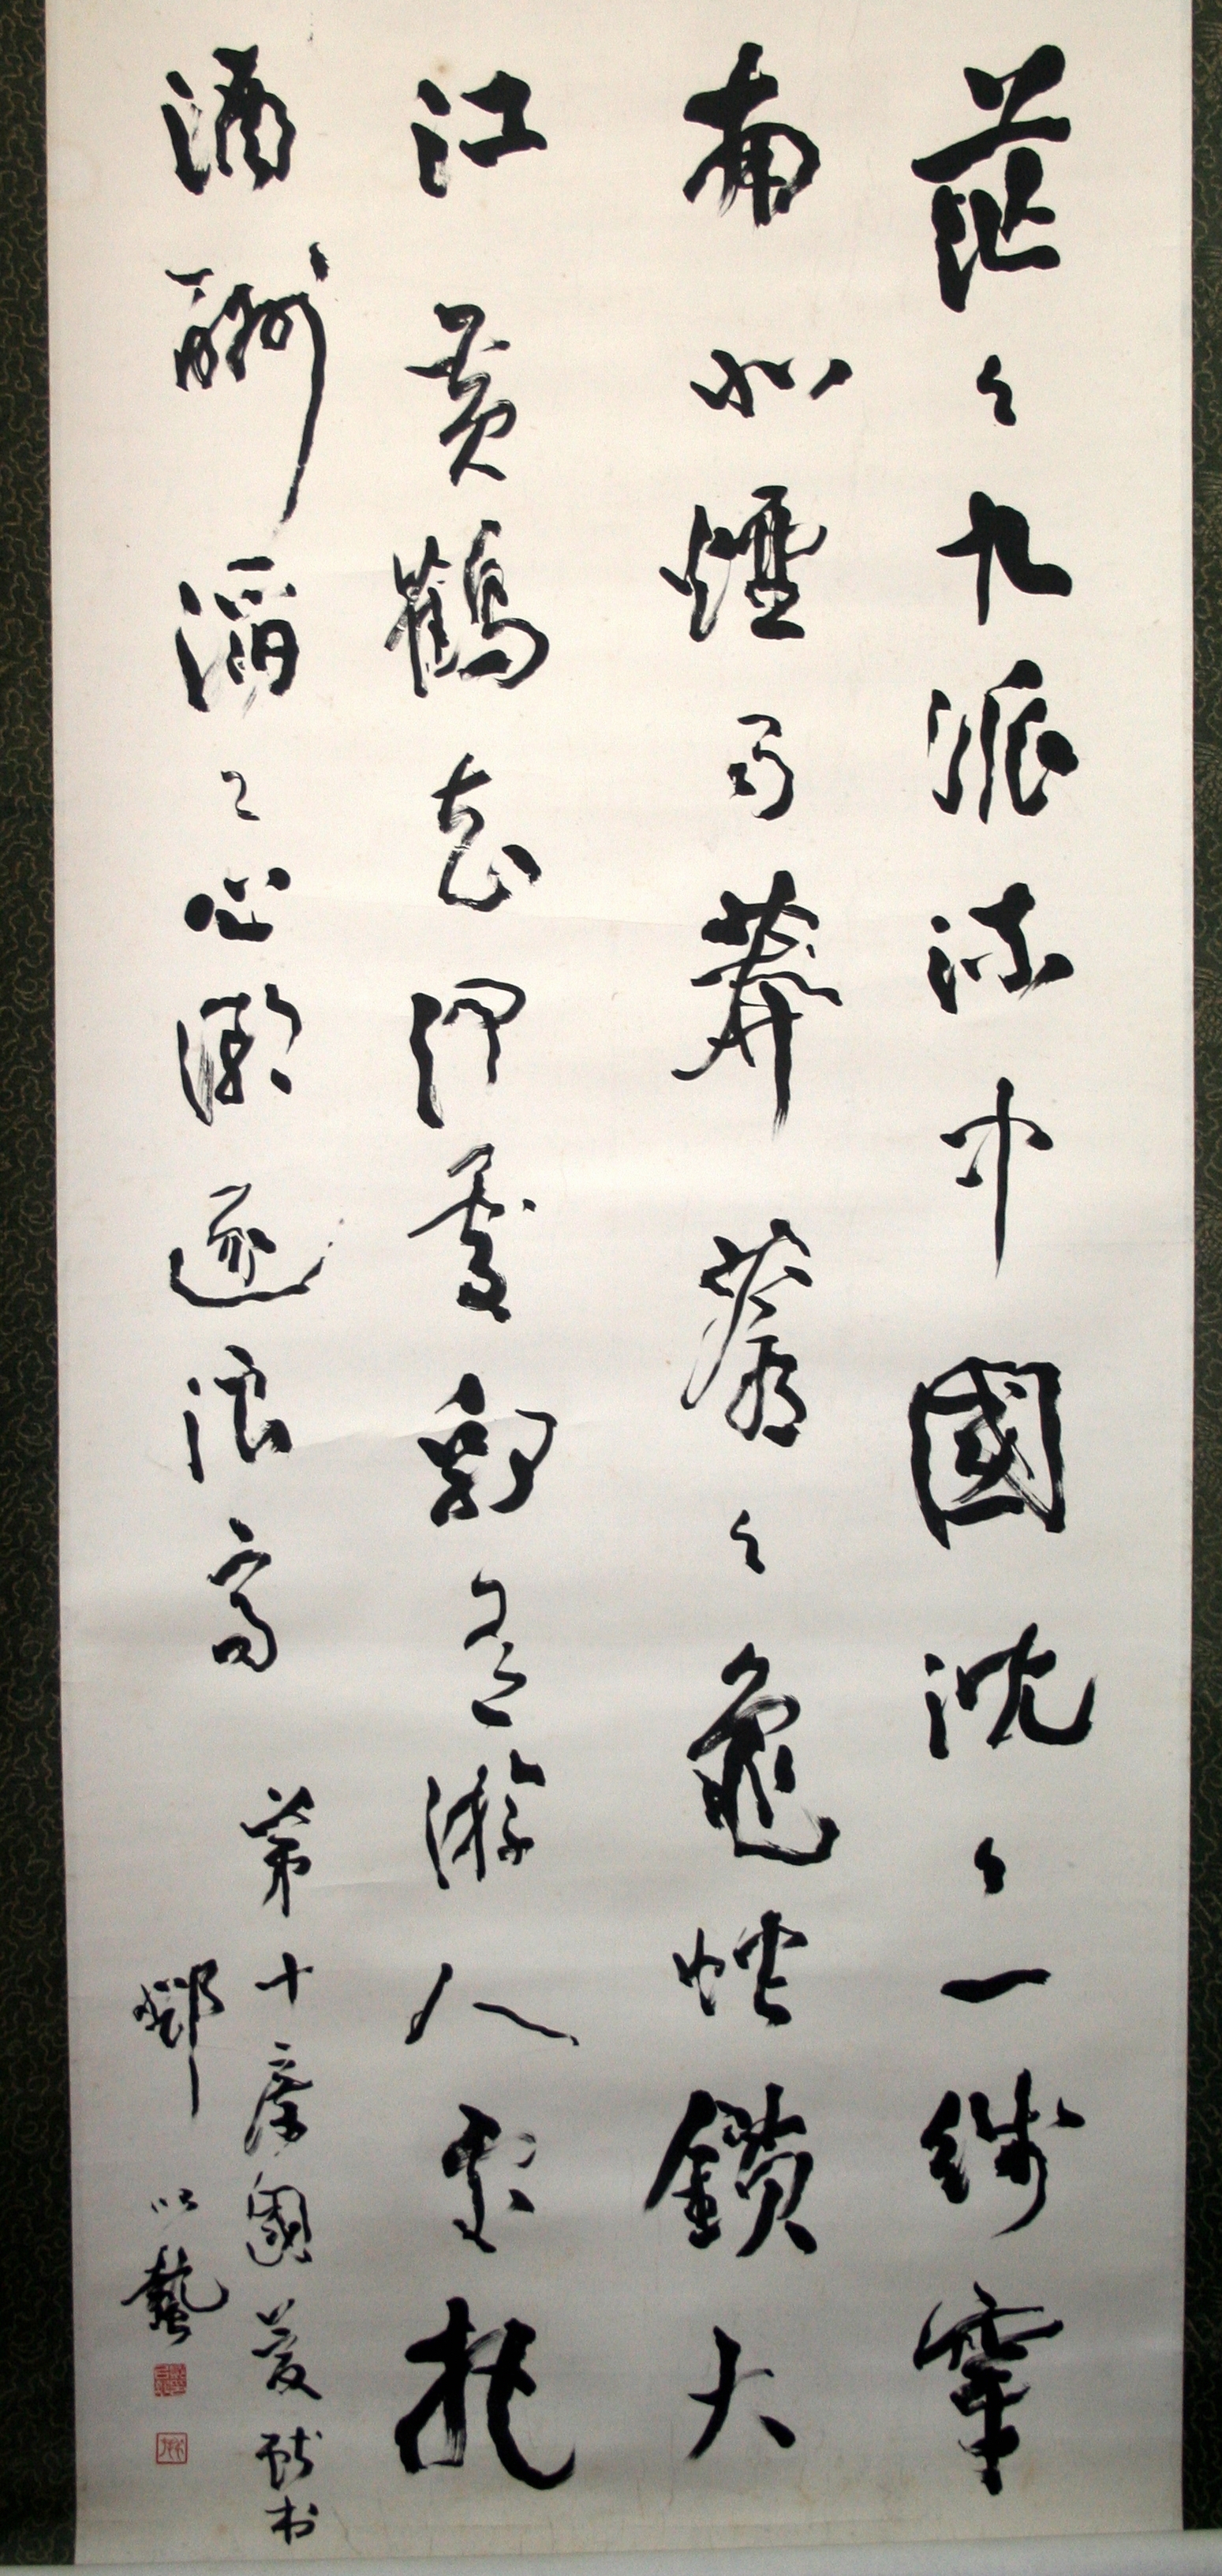 茫々九派流中國沈々一綫穿
南北煙雨莽蒼々龜蛇鎖大
江黃鶴去何處剩有游人處把
酒酹滔々心潮逐浪高
第十國慶献书
鄧以蟄